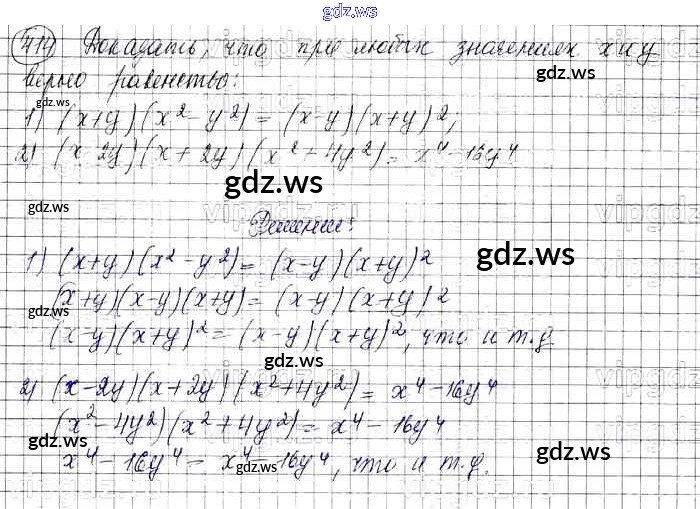 gdz.ws
414 Доказать, что при любых значениях x и y
верно равенство:
gdz.ws
1) (x+y)(x² - y²) = (x-y)(x+y)²;
gdz.ws
gdz.ws
2) (x-2y)(x+2y)(x²+4y²) = x⁴-16y⁴
gdz.ws
gdz.ws
Решение:
1) (x+y)(x²-y²) = (x-y)(x+y)²
gdz.ws
(x+y)(x-y)(x+y) = (x-y)(x+y)²
(x-y)(x+y)² = (x-y)(x+y)², что и т.д
gdz.ws
2) (x-2y)(x+2y)(x²+4y²) = x⁴-16y⁴
(x²-4y²)(x²+4y²) = x⁴-16y⁴
gdz.ws
gdz.ws
x⁴-16y⁴ = x⁴-16y⁴, что и т.д.
gdz.ws
gdz.ws